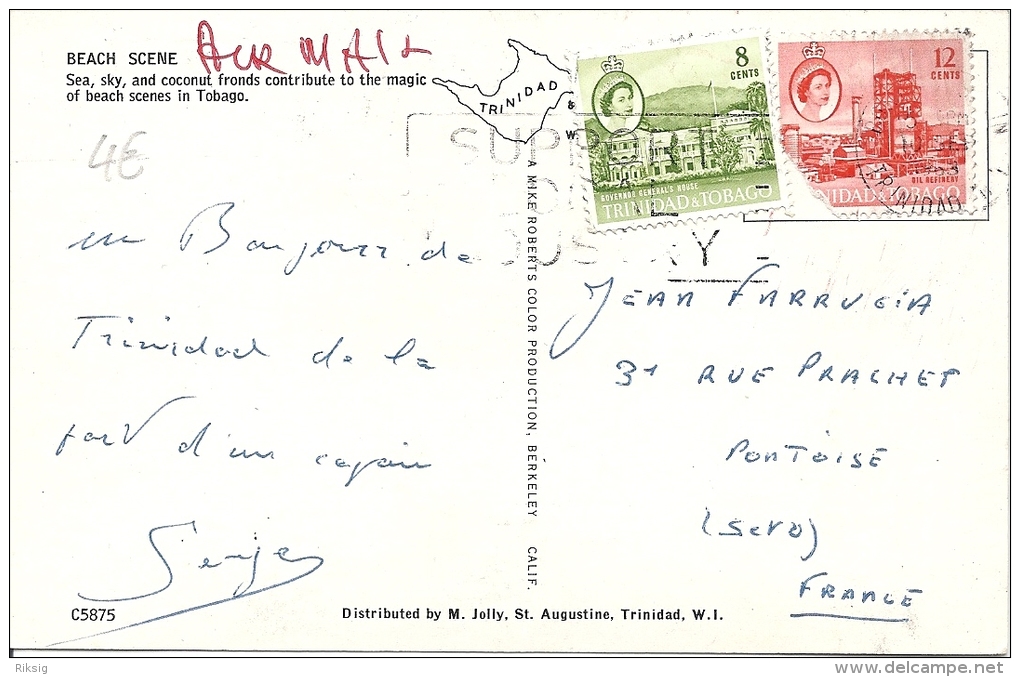 BEACH SCENE
AIR MAIL
Sea, sky, and coconut fronds contribute to the magic
of beach scenes in Tobago.
4€
TRINIDAD
&
W.
SUPPORT
RY
8
CENTS
GOVERNOR GENERAL'S HOUSE
TRINIDAD & TOBAGO
12
CENTS
OIL REFINERY
TRINIDAD & TOBAGO
TRINIDAD
un Bonjour de
Trinidad de la
part d'un copain
Serge
A MIKE ROBERTS COLOR PRODUCTION, BERKELEY CALIF.
JEAN FARRUGIA
31 RUE PRACHET
PONTOISE
(S et O)
FRANCE
C5875
Distributed by M. Jolly, St. Augustine, Trinidad, W.I.
Riksig
www.delcampe.net